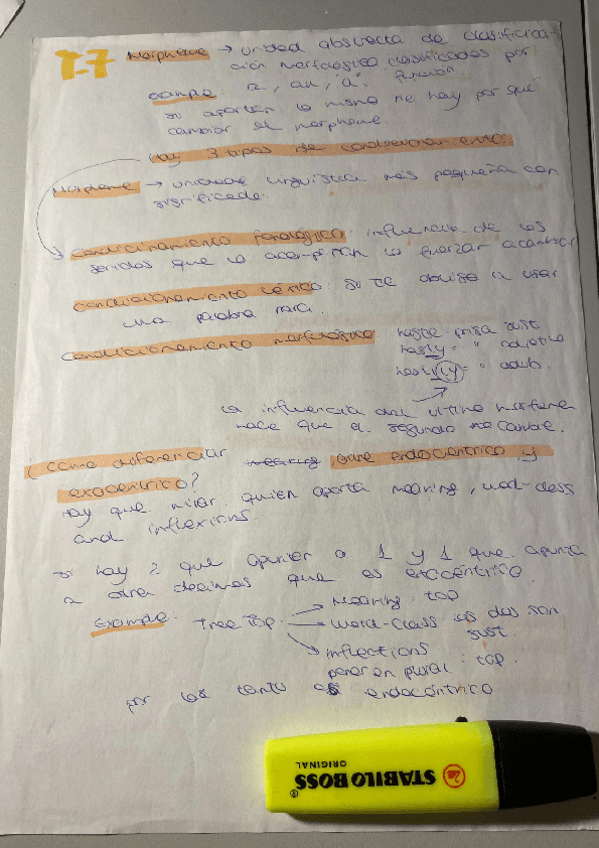 T.7 Morpheme → unidad abstracta de clasificica-
ción morfológica clasificados por
función
example a, an, "a"
si aportan lo mismo no hay por qué
cambiar el morpheme.
Hay 3 tipos de condicionamiento:
Morpheme → unidad linguistica más pequeña con
significado.
Condicinamiento fonológico: influencia de los
sonidos que lo acompañan lo fuerzar a cambiar
condicionamiento léxico: se te obliga a usar
una palabra rara.
Condicionamiento morfológico
haste - prisa sust
hasty = " adjetivo
hastily = " adub.
La influencia del ultimo morfema
hace que el segundo me cambie.
¿Cómo diferenciar meaning entre endocéntrico y
exocéntrico?
Hay que mirar quien aporta meaning, word-class
and inflexions.
Si hay 2 que apunten a 1 y 1 que apunta
a otra decimos que es exocéntrico
Example: TreeTop. → Meaning: top
→ Word-Class: las dos son
sust
→ inflections
poner en plural: top.
por lo tanto es endocéntrico
STABILO BOSS®
ORIGINAL